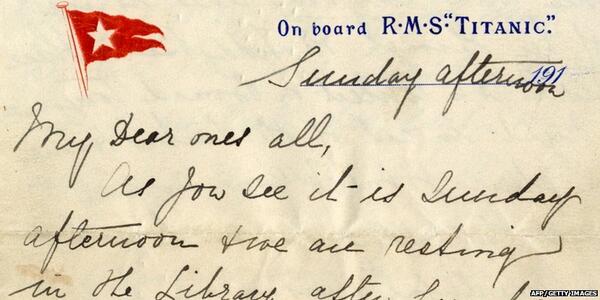 On board R·M·S. "TITANIC."
191
Sunday afternoon
My Dear ones all,
As you see it is Sunday
afternoon & we are resting
in the Library after
AFP/GETTY IMAGES